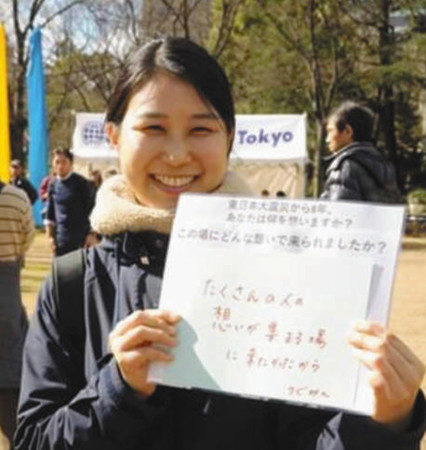 Tokyo
東日本大震災から8年、
あなたは何を想いますか？
この場にどんな想いで来られましたか？
たくさんの人の
想いが集まる場
に来たかったから